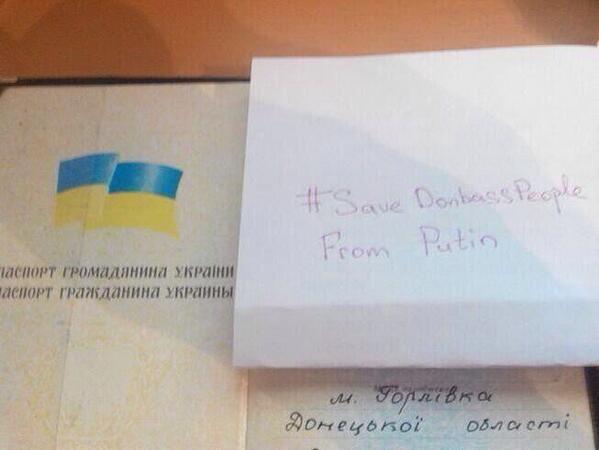 ПАСПОРТ ГРОМАДЯНИНА УКРАЇНИ
ПАСПОРТ ГРАЖДАНИНА УКРАИНЫ
#Save DonbassPeople
From Putin
м. Горлівка
Донецької області